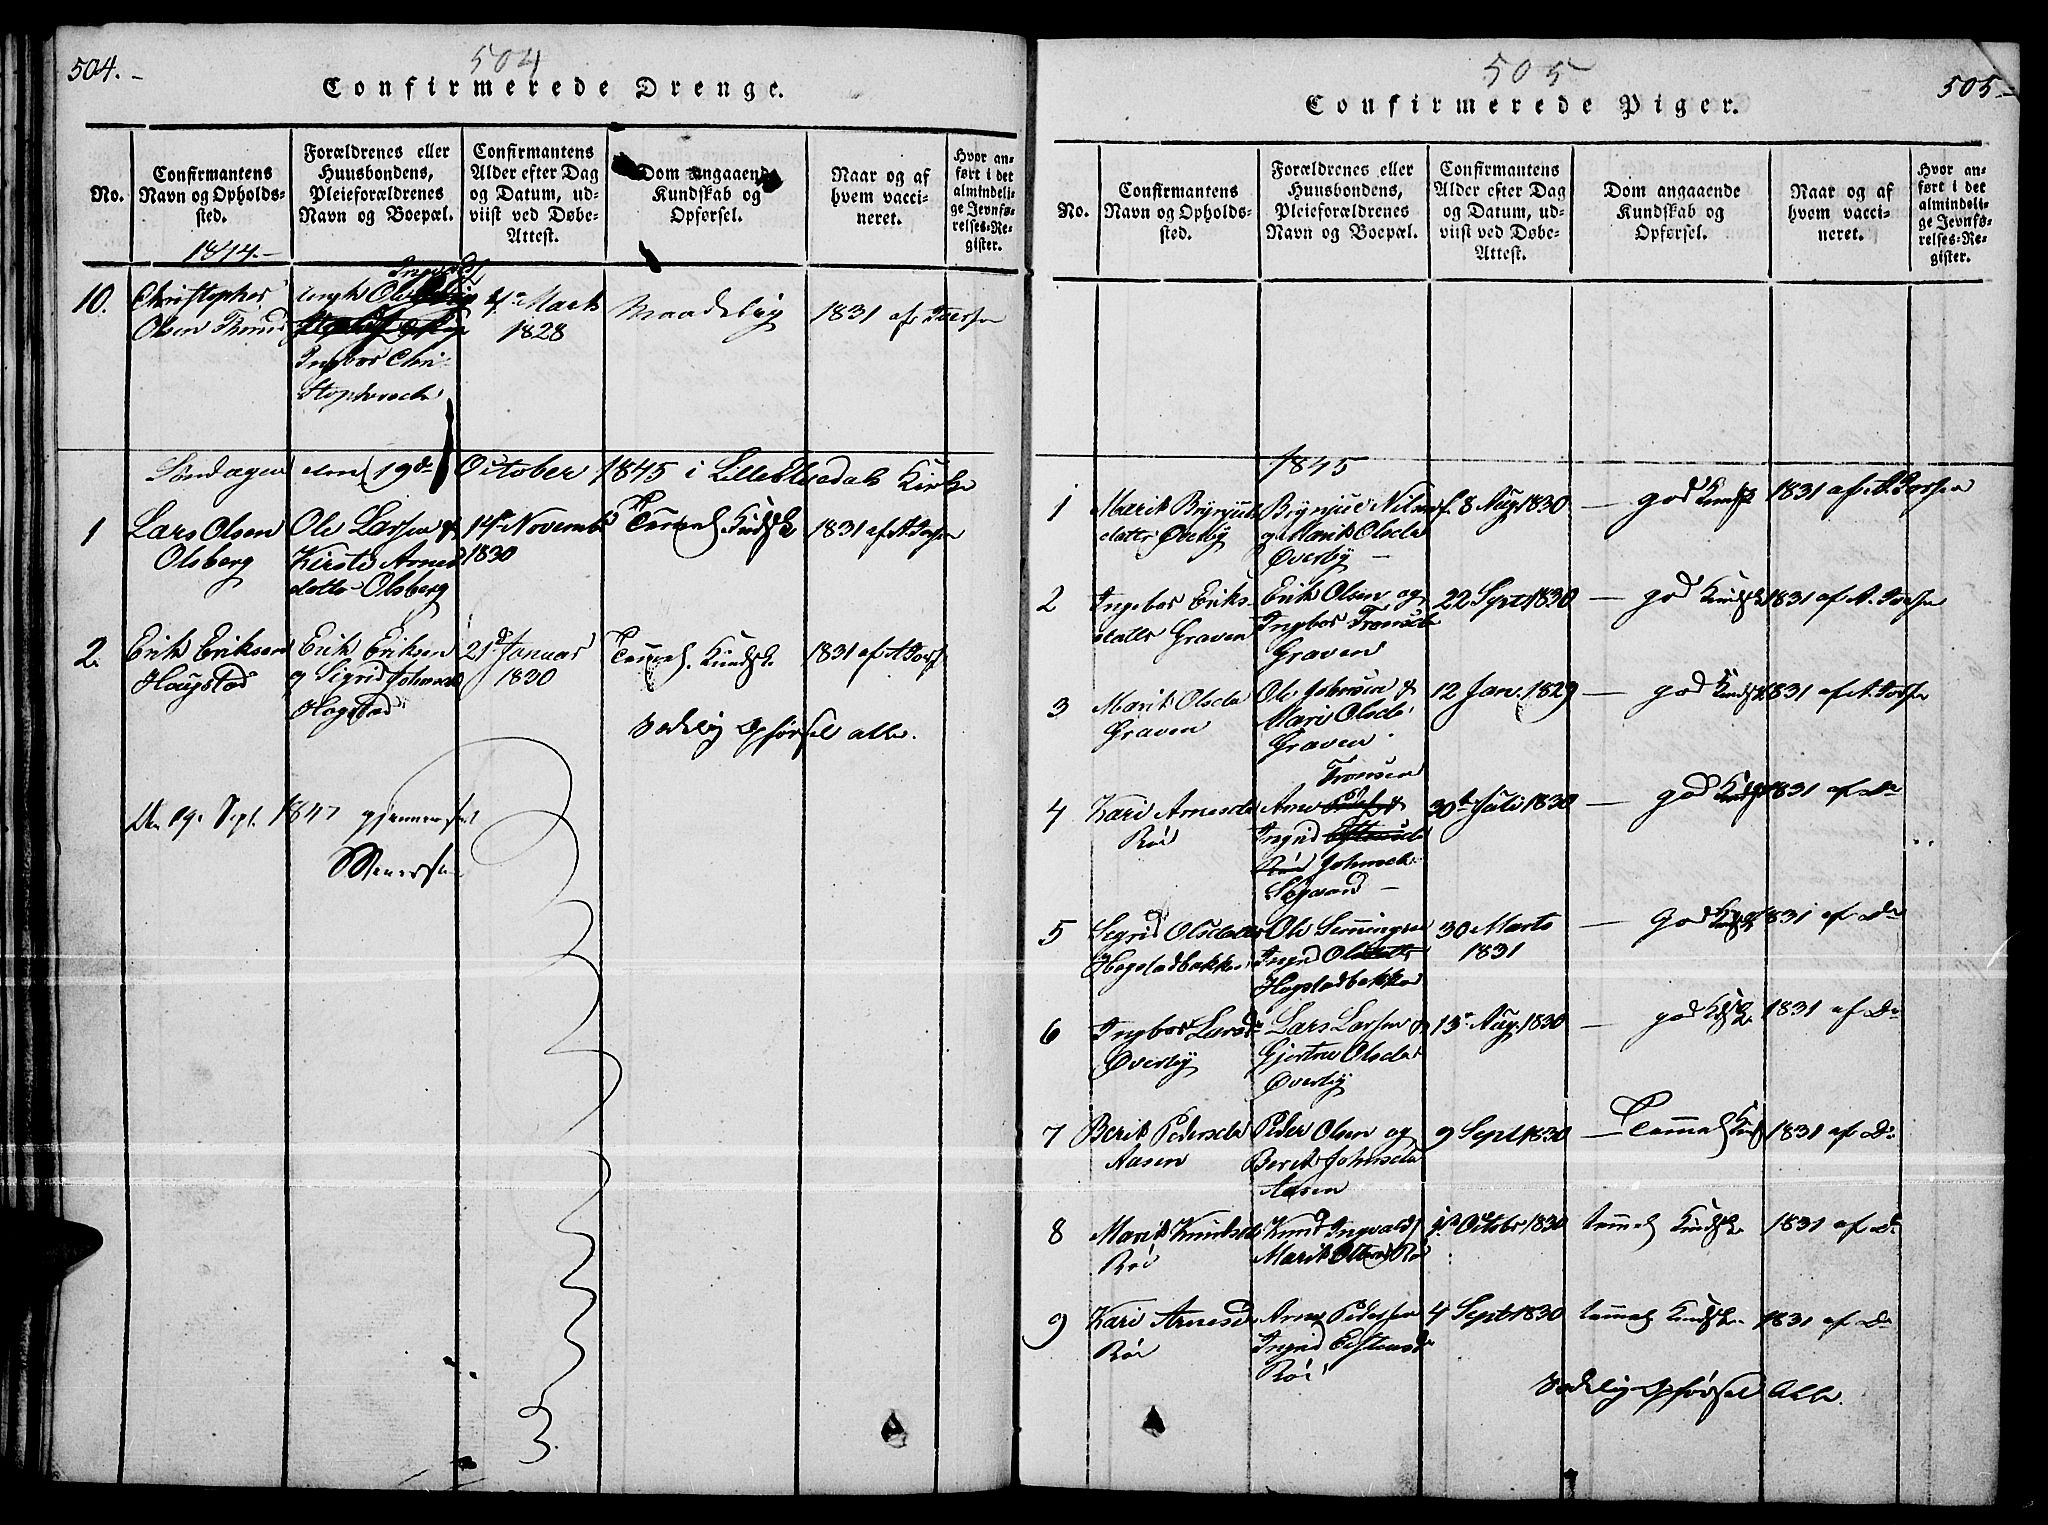 504.
504
Confirmerede Drenge.
No.
Confirmantens Navn og Opholds-sted.
Forældrenes eller Huusbondens, Pleieforældrenes Navn og Boepæl.
Confirmantens Alder efter Dag og Datum, ud-viist ved Døbe-Attest.
Dom angaaende Kundskab og Opførsel.
Naar og af hvem vacci-neret.
Hvor an-ført i det almindeli-ge Jevnfø-relses-Re-gister.
1844.
10.
Christopher
Olsen
Ingbor Chri-
stophersdr
4de Marts
1828
Maadelig
1831 af
Søndagen den 19de October 1845 i Lille Elvedals Kirke
1
Lars Olsen
Olsberg
Ole Larsen &
Kirsti Arnes
datter Olsberg
14de Novemb
1830
Temmel. Kundsk
1831 af
2.
Erik Eriksen
Haugstad
Erik Eriksen
og Sigrid
Hogstad
21de Januar
1830
Temmel. Kundsk.
1831 af
Sædelig Opførsel alle.
Den 19. Sept. 1847 gjennemseet
505
505
Confirmerede Piger.
No.
Confirmantens Navn og Opholds-sted.
Forældrenes eller Huusbondens, Pleieforældrenes Navn og Boepæl.
Confirmantens Alder efter Dag og Datum, ud-viist ved Døbe-Attest.
Dom angaaende Kundskab og Opførsel.
Naar og af hvem vacci-neret.
Hvor an-ført i det almindeli-ge Jevnfø-relses-Re-gister.
1845
1
Marit
datter Øverby
og Marit Olsda
Øverby
8 Aug. 1830
god Kundsk
1831 af
2
Ingebor Eriks-
datter Graven
Erik Olsen og
Ingbor Tronsda
Graven
22 Sept 1830
god Kundsk
1831 af A.
3
Marit Olsda
Graven
Ole &
Mari Olsda
Graven
12 Jan. 1829
god Kundsk
1831 af A.
4
Kari Arnesda
Røe
Tronsen
Arne
Ingrid
Johnsda
Søgaard
30te Juli 1830
god Kundsk
1831 af Do
5
Sigrid Olsdatter
Hogstadbakken
Ole Semmingsen
Ingrid Olsdatter
Hogstadbakken
30 Marts
1831
God Kundsk
1831 af Do
6
Ingbor Larsd
Øverby
Lars Larsen &
Gjertru Olsda
Øverby
13de Aug. 1830
god Kdsk.
1831 af Do
7
Berit Pedersda
Aasen
Peder Olsen og
Berit Johnsda
Aasen
9 Sept 1830
Temmel Kundsk
1831 af Do
8
Marit Knudsda
Røe
Knud Ingvalds
Marit Røe
Octobr 1830
temmel Kundsk.
1831 af Do
9
Kari Arnesd
Røe
Arne Pedersen
Ingrid Estensd
Røe
4 Sept 1830
temmel Kundsk.
1831 af Do
Sædelig Opførsel Alle.